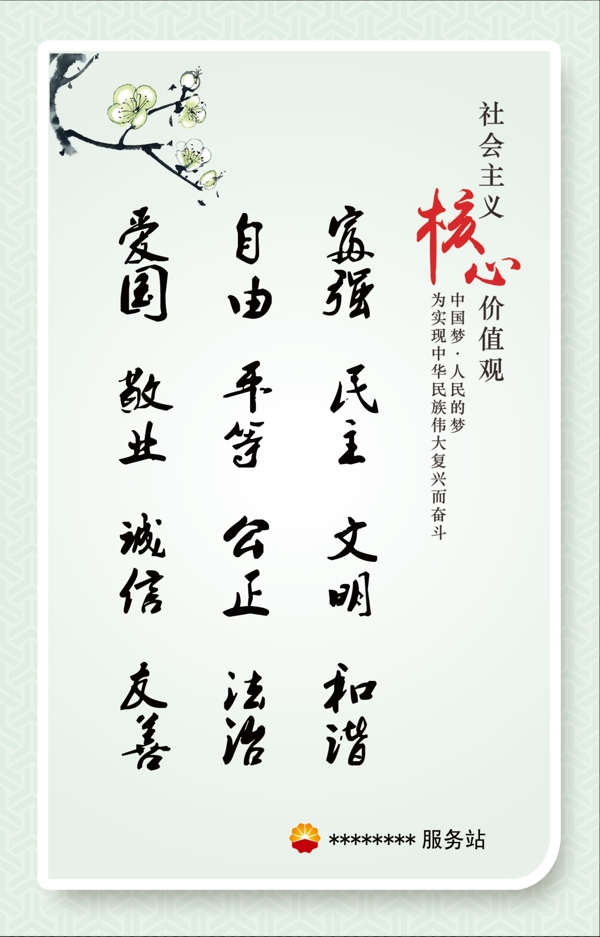 社会主义核心价值观
中国梦·人民的梦
为实现中华民族伟大复兴而奋斗
富强 民主 文明 和谐
自由 平等 公正 法治
爱国 敬业 诚信 友善
******** 服务站